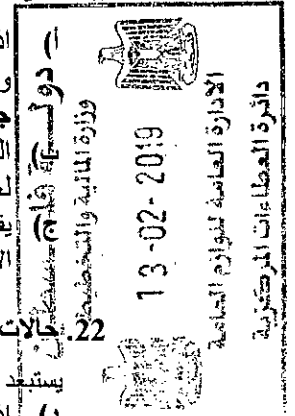 دولة فلسطين
وزارة المالية والتخطيط
13-02-2019
الادارة العامة للوازم العامة
دائرة العطاءات المركزية
22. حالات
يستبعد